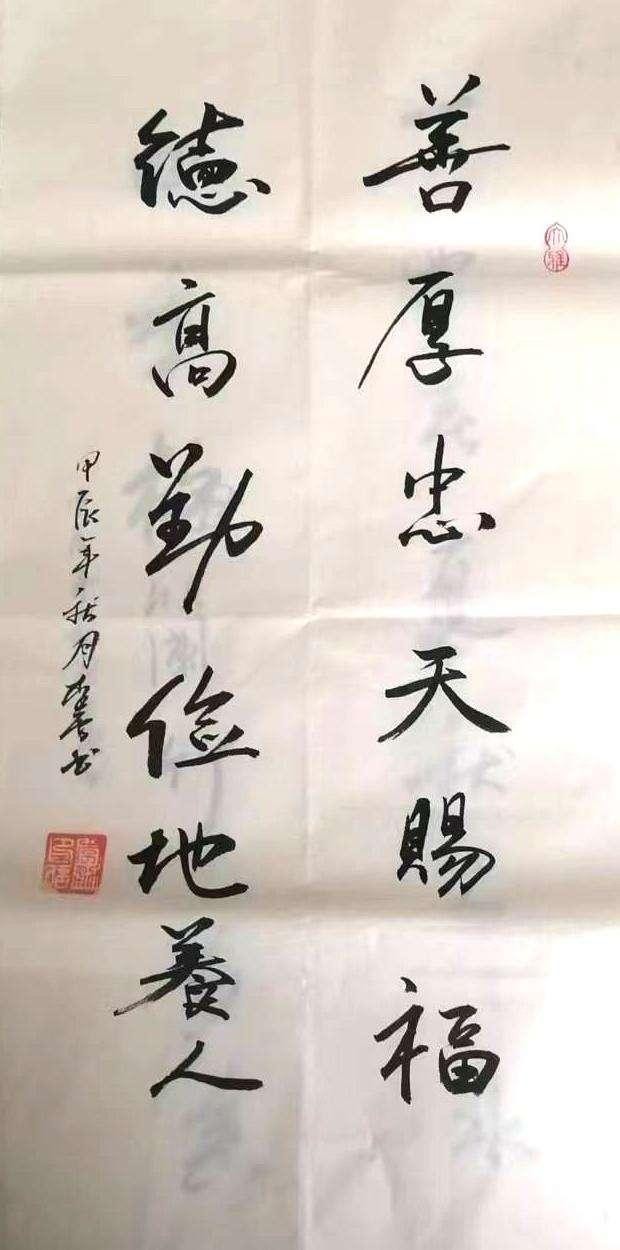 善厚忠天賜福
德高勤儉地養人
甲辰年秋月
書
大雅